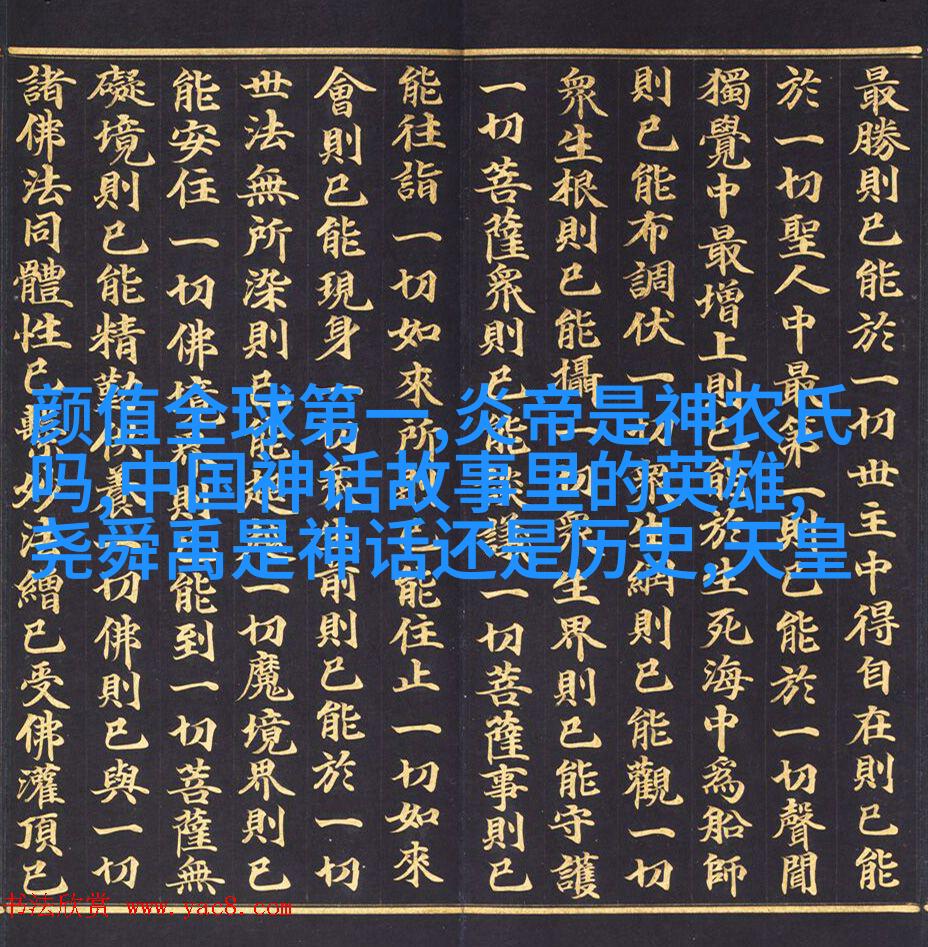 最勝則已能於一切世主中得自在則已能
於一切聖人中最第一則已能於一切聲聞
獨覺中最增上則已能於生死海中爲船師
則已能布調伏一切衆生網則已能觀一切
衆生根則已能攝一切衆生界則已能守護
一切菩薩衆則已能議一切菩薩事則已
能往詣一切如來所則已能住止一切如來
會則已能現身一切前則已能於一切
世法無所染則已能超越一切魔境界則已
能安住一切佛境界則已能到一切菩薩無
礙境則已能精勤供養一切佛則已與一切
諸佛法同體性已繫妙法繒已受佛灌頂已
颜值全球第一,炎帝是神农氏
吗,中国神话故事里的英雄,
尧舜禹是神话还是历史,天皇
书法欣赏 www.yac8.com